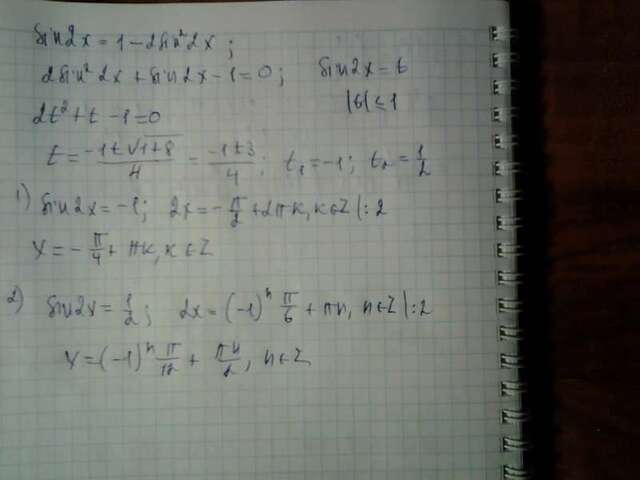 sin2x = 1 - 2sin²2x ;
2sin²2x + sin2x - 1 = 0 ; sin2x = t
|t| ≤ 1
2t² + t - 1 = 0
t = (-1 ± √(1+8))/4 = (-1 ± 3)/4 ; t₁ = -1 ; t₂ = 1/2
1) sin2x = -1 ; 2x = -π/2 + 2πk, k∈Z |:2
x = -π/4 + πk, k∈Z
2) sin2x = 1/2 ; 2x = (-1)ⁿ π/6 + πn, n∈Z |:2
x = (-1)ⁿ π/12 + πn/2, n∈Z